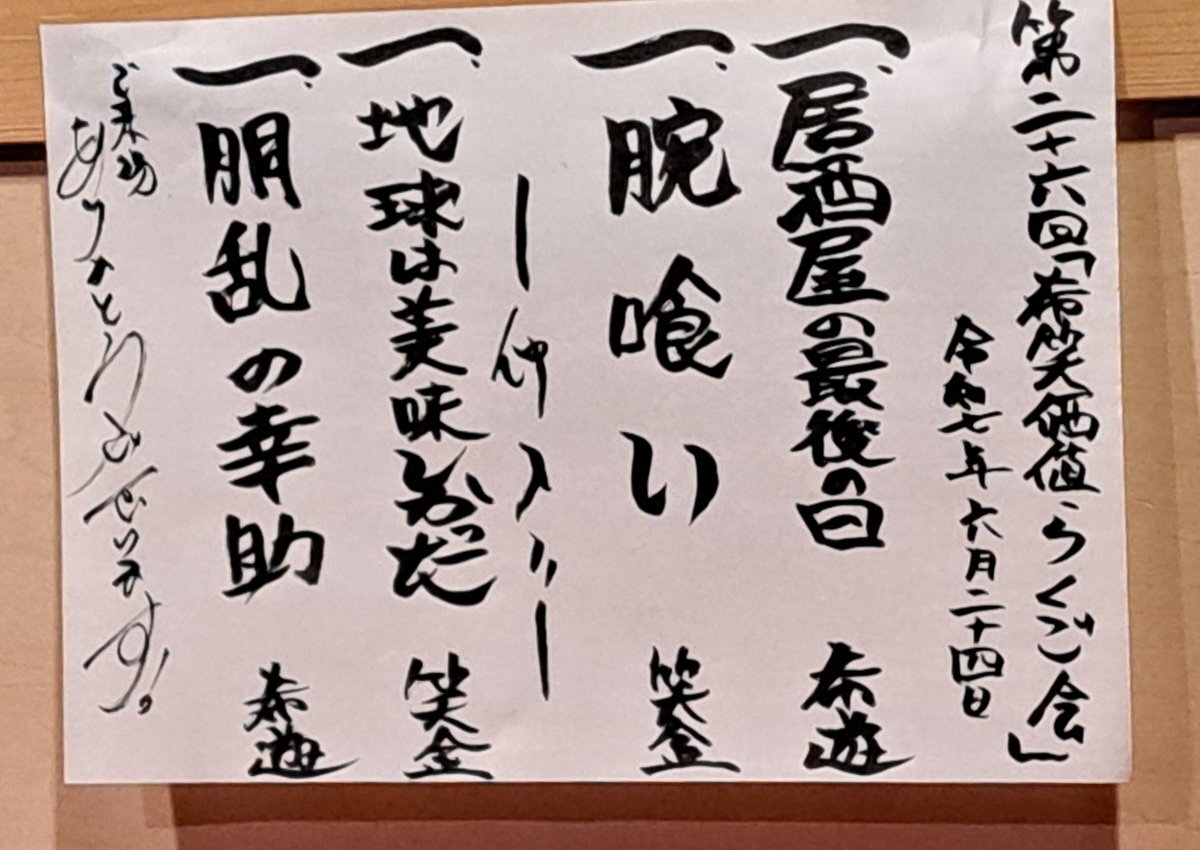 第二十六回「希笑価値らくご会」
令和七年六月二十四日
一、居酒屋の最後の日 希遊
一、腕喰い 笑金
ー仲入りー
一、地球は美味かった 笑金
一、胴乱の幸助 希遊
ご来場
ありがとうございます!